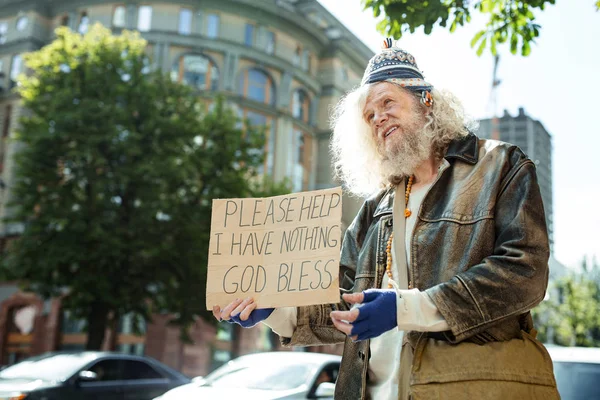 PLEASE HELP
I HAVE NOTHING
GOD BLESS